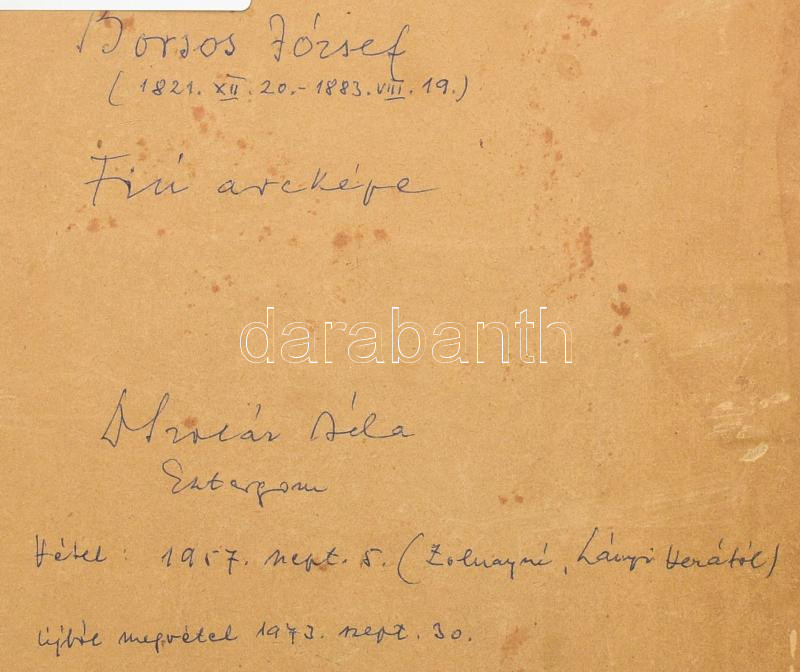 Borsos József
(1821. XII. 20.-1883. VIII. 19.)
Fiú arcképe
darabanth
Béla
Esztergom
Vétel: 1957. szept. 5. (Zolnayné, Lányi Verától)
Újból megvétel 1973. szept. 30.